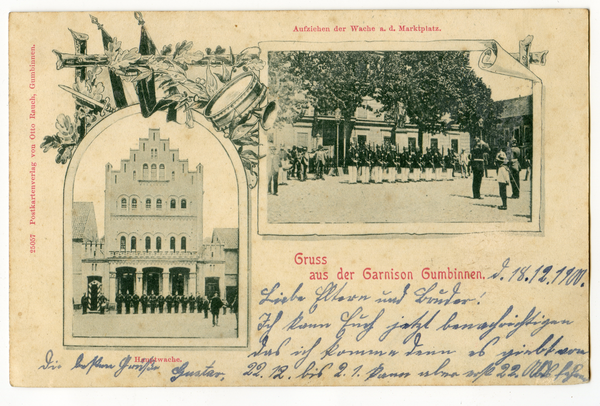 Aufziehen der Wache a. d. Marktplatz.
25057 Postkartenverlag von Otto Rauch, Gumbinnen.
Hauptwache.
Gruss
aus der Garnison Gumbinnen.
d. 18.12.1900.
Liebe Eltern und Brüder!
Ich kann Euch jetzt benachrichtigen
das ich komme denn es giebt von
22.12. bis 2.1. kann aber erst 22.
die besten Grüße
Gustav.